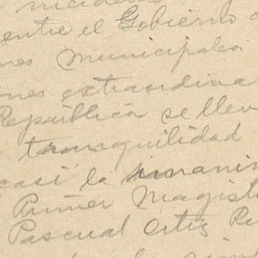 entre el Gobierno
nes Municipales
nes extraordina
República se llev
tranquilidad
casi la unanim
Primer Magist
Pascual Ortiz Ru